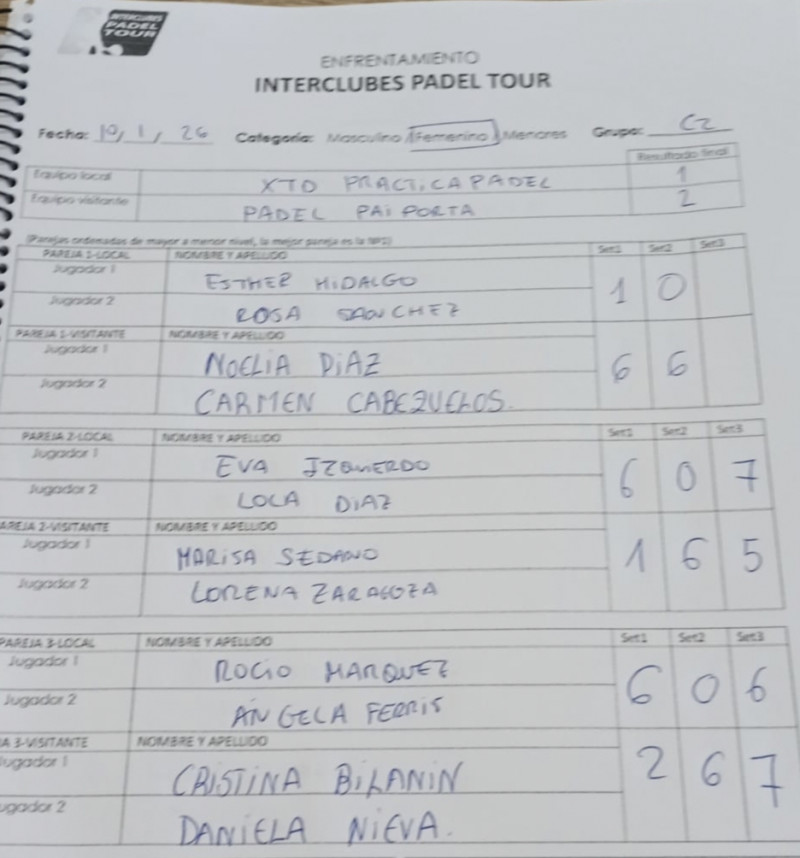 INTERCLUBES
PADEL
TOUR
ENFRENTAMIENTO
INTERCLUBES PADEL TOUR
Fecha: 10/ 1 / 26 Categoria: Masculino /Femenino/ Menores Grupo: C2
Resultado final
Equipo local XTO PRACTICAPADEL 1
Equipo visitante PADEL PAIPORTA 2
(Parejas ordenadas de mayor a menor nivel, la mejor pareja es la Nº1)
PAREJA 1-LOCAL NOMBRE Y APELLIDO Set1 Set2 Set3
Jugador 1 ESTHER HIDALGO
Jugador 2 ROSA SANCHEZ 1 0
PAREJA 1-VISITANTE NOMBRE Y APELLIDO
Jugador 1 NOELIA DiAZ
Jugador 2 CARMEN CABEZUELOS. 6 6
PAREJA 2-LOCAL NOMBRE Y APELLIDO Set1 Set2 Set3
Jugador 1 EVA IZQUIERDO
Jugador 2 LOLA DiAZ 6 0 7
AREJA 2-VISITANTE NOMBRE Y APELLIDO
Jugador 1 MARiSA SEDANO
Jugador 2 LORENA ZARAGOZA 1 6 5
PAREJA 3-LOCAL NOMBRE Y APELLIDO Set1 Set2 Set3
Jugador 1 ROCiO MARQUEZ
Jugador 2 ANGELA FERRIS 6 0 6
A 3-VISITANTE NOMBRE Y APELLIDO
ugador 1 CRISTINA BiLANIN
ugador 2 DANIELA NIEVA. 2 6 7